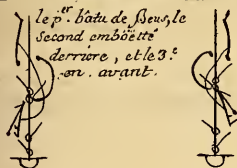 le p.er bâtu de Beus, le
second emböëtté
derriere, et le 3.e
en . avant.